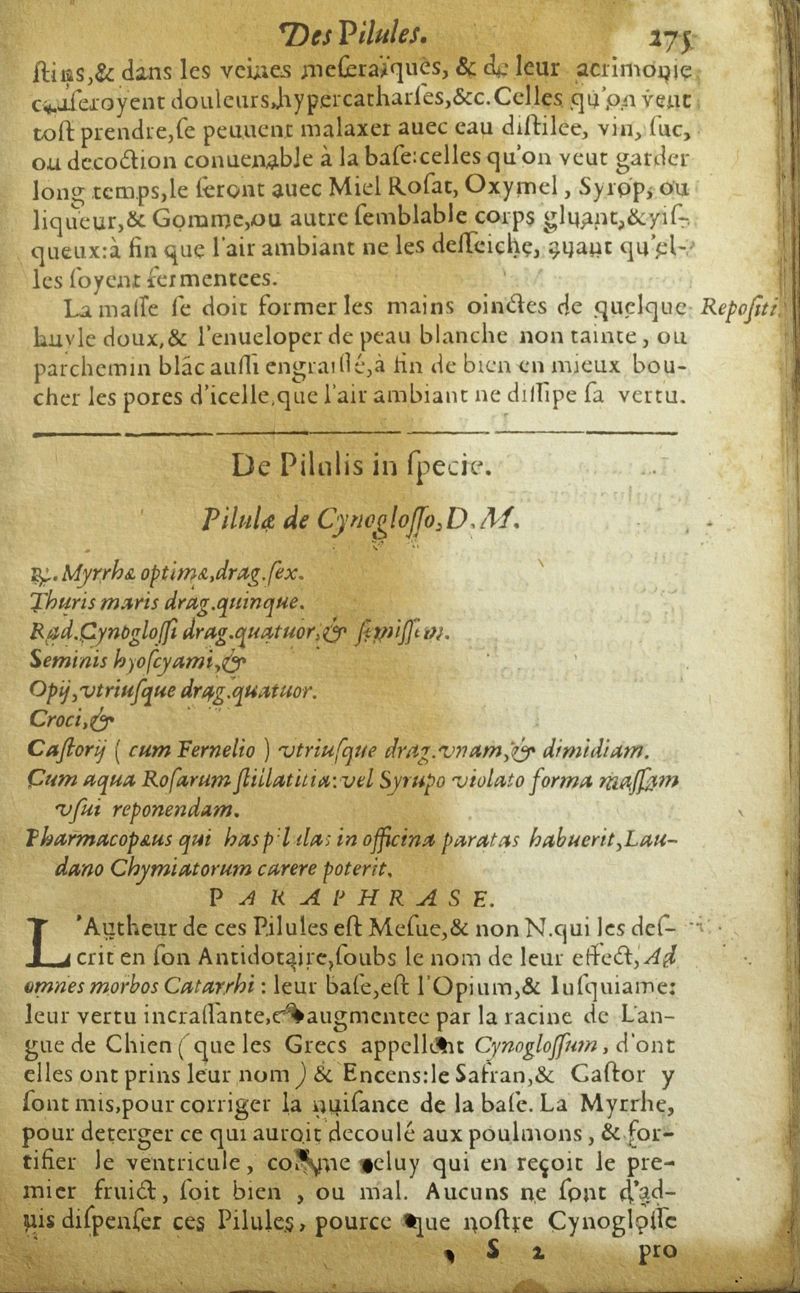 Des Pilules. 275
ſtins,& dans les veines meſeraïques, & de leur acrimonie
cauſeroyent douleurs,hypercatharſes,&c. Celles qu'on veut
toſt prendre,ſe peuuent malaxer auec eau diſtilee, vin, ſuc,
ou decoction conuenable à la baſe:celles qu'on veut garder
long temps,le ſeront auec Miel Roſat, Oxymel, Syrop, ou
liqueur,& Gomme,ou autre ſemblable corps gluant,&viſ-
queux:à fin que l'air ambiant ne les deſſeiche, ayant qu'el-
les ſoyent fermentees.
La maſſe ſe doit former les mains oinctes de quelque Repoſiti
huyle doux,& l'enueloper de peau blanche non tainte, ou
parchemin blãc auſſi engraiſſé,à fin de bien en mieux bou-
cher les pores d'icelle,que l'air ambiant ne diſſipe ſa vertu.
De Pilulis in ſpecie.
Pilulæ de Cynogloſſo,D.M.
℞. Myrrhæ optimæ,drag.ſex.
Thuris maris drag.quinque.
Rad.Cynogloſſi drag.quatuor,& ſemiſſem.
Seminis hyoſcyami,&
Opij,vtriuſque drag.quatuor.
Croci,&
Caſtorij ( cum Fernelio ) vtriuſque drag.vnam,& dimidiam.
Cum aqua Roſarum ſtillatitia:vel Syrupo violato forma maſſam
vſui reponendam.
Pharmacopæus qui has pilulas in officina paratas habuerit,Lau-
dano Chymiatorum carere poterit.
PARAPHRASE.
L'Autheur de ces Pilules eſt Meſue,& non N.qui les deſ-
crit en ſon Antidotaire,ſoubs le nom de leur effect, Ad
omnes morbos Catarrhi : leur baſe,eſt l'Opium,& Iuſquiame:
leur vertu incraſſante,eſt augmentee par la racine de Lan-
gue de Chien ( que les Grecs appellent Cynogloſſum, d'ont
elles ont prins leur nom ) & Encens:le Safran,& Caſtor y
ſont mis,pour corriger la nuiſance de la baſe. La Myrrhe,
pour deterger ce qui auroit decoulé aux poulmons, & for-
tifier le ventricule, comme celuy qui en reçoit le pre-
mier fruict, ſoit bien , ou mal. Aucuns ne ſont d'ad-
uis diſpenſer ces Pilules, pource que noſtre Cynogloſſe
S 2 pro